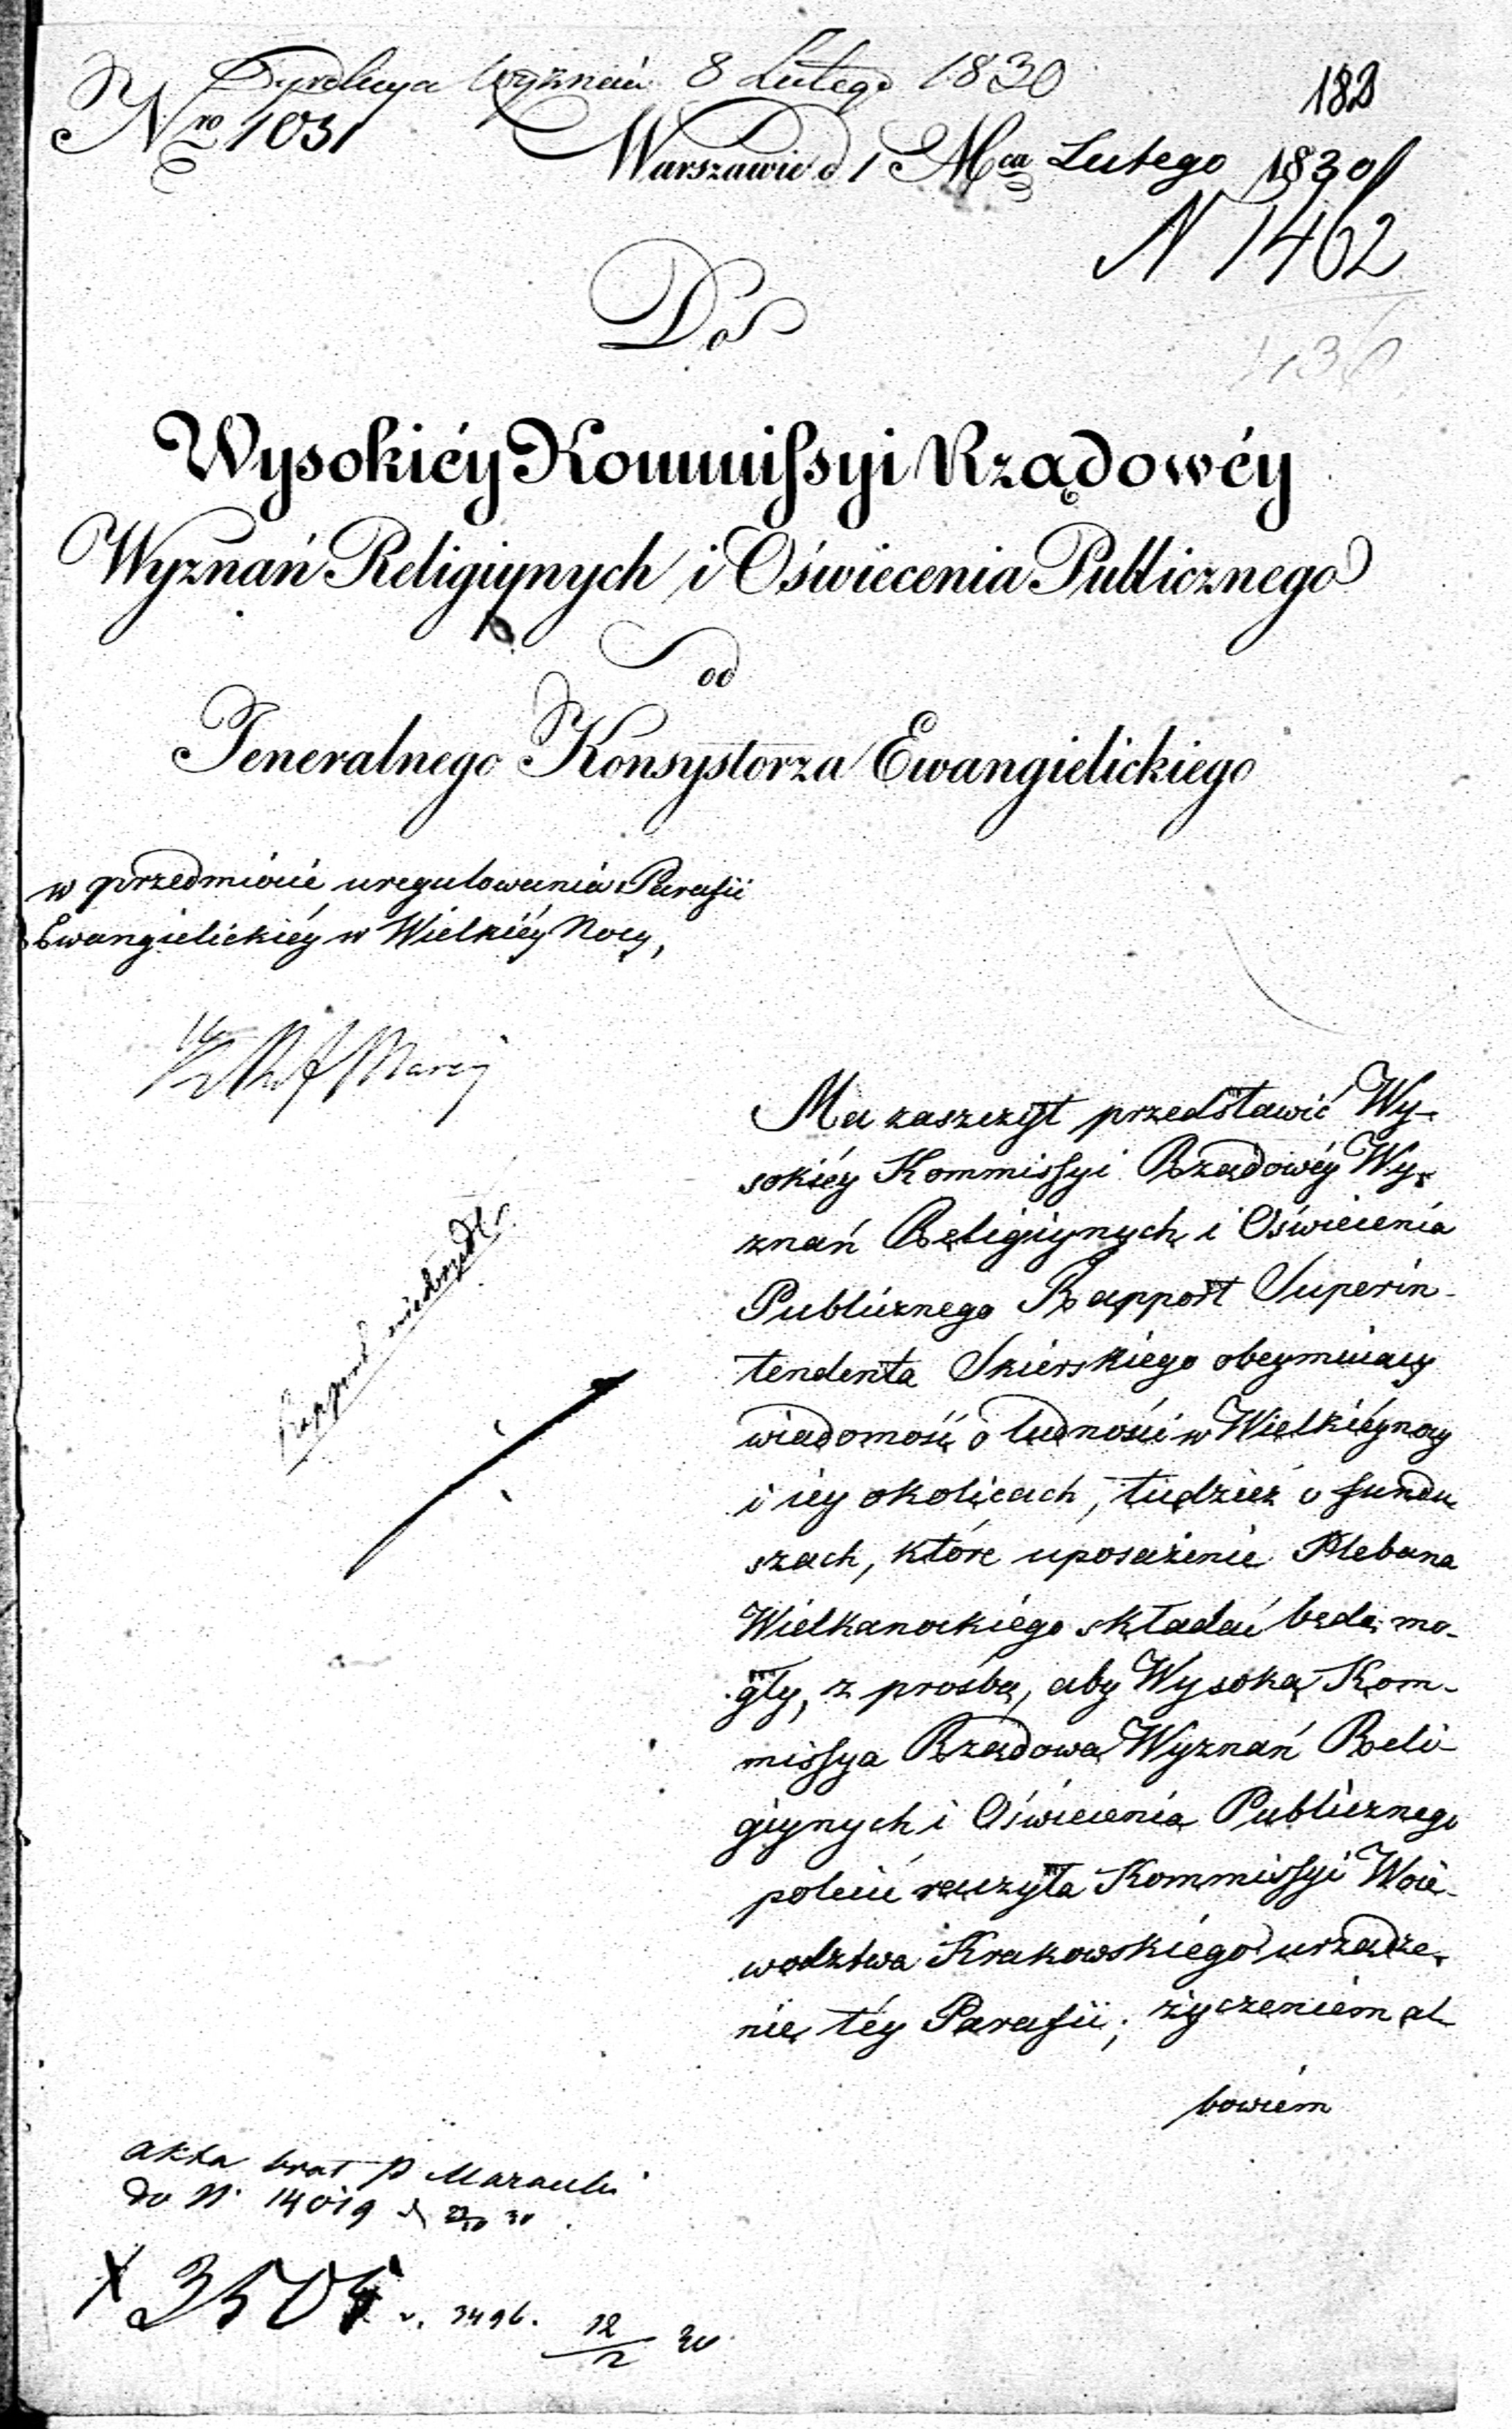 Dyrekcya Wyznań 8 Lutego 1830
Nro 1031
183
Warszawie d 1 Mca Lutego 1830
N 1462
Do
Wysokiéy Kommissyi Rządowéy
Wyznań Religiynych i Oświecenia Publicznego
od
Jeneralnego Konsystorza Ewangielickiego
w przedmiocie uregulowania Parafii
Ewangielickiéy w Wielkiéy Nocy,
Ma zaszczyt przedstawić Wy-
sokiéy Kommissyi Rządowéy Wy-
znań Religiynych i Oświecenia
Publicznego Rapport Superin-
tendenta Skierskiego obeymuiący
wiadomość o ludności w Wielkiéynocy
i iey okolicach, tudzież o fundu
szach, które uposażenie Plebana
Wielkanockiego składać będą mo-
gły, z prośbą, aby Wysoka Kom-
missya Rządowa Wyznań Reli-
giynych i Oświecenia Publicznego
polecić raczyła Kommissyi Woie-
wodztwa Krakowskiego urządze-
nie téy Parafii; życzeniem al-
bowiem
akta brał P
do N. 14019
X 3505 v. 3496. 12/2 30